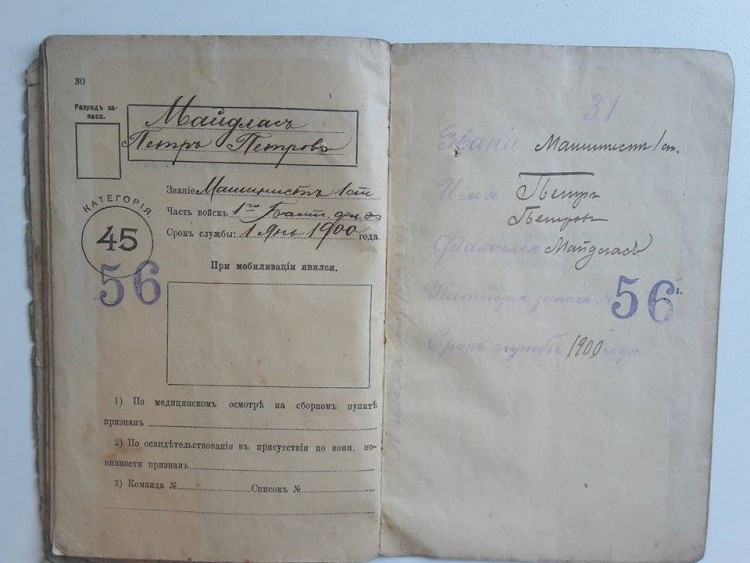 30
Разрядъ за-
паса.
Майдласъ
Петръ Петровъ
Званіе Машинистъ 1 ст
Часть войскъ 1го
Срокъ службы: 1 Янв 1900 года
КАТЕГОРІЯ
45
56
При мобилизаціи явился.
1) По медицинскомъ осмотрѣ на сборномъ пунктѣ
признанъ
2) По освидѣтельствованіи въ присутствіи по воин. по-
винности признанъ
3) Команда № Списокъ №
31
Званіе Машинистъ 1 ст.
Имя Петръ
Петровъ
Фамилія Майдласъ
Категорія запаса № 56
Срокъ службы 1900 года